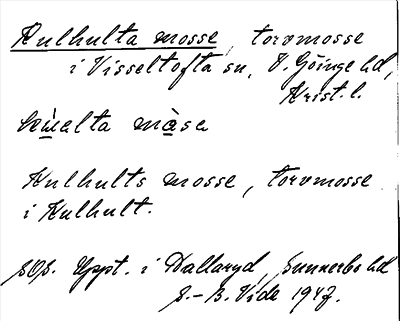 Kulhulta mosse, torvmosse
i Visseltofta sn, V. Göinge hd,
Krist. l.
màsa
Kulhults mosse, torvmosse
i Kulhult.
SOS. Uppt. i Hallaryd, Sunnerbo hd
S.-B. Vide 1947.